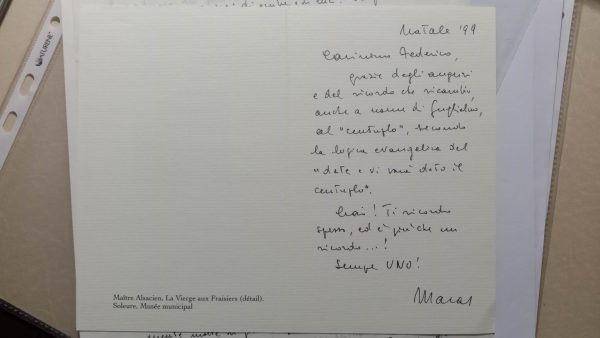 Natale '99
Carissimo Federico,
grazie degli auguri
e del ricordo che ricambio,
anche a nome di Guglielmo,
al "centuplo", secondo
la logica evangelica del
"date e vi sarà dato il
centuplo".
Ciao! Ti ricordo
spesso, ed è più che un
ricordo...!
Sempre UNO!
Maître Alsacien. La Vierge aux Fraisiers (détail).
Soleure. Musée municipal